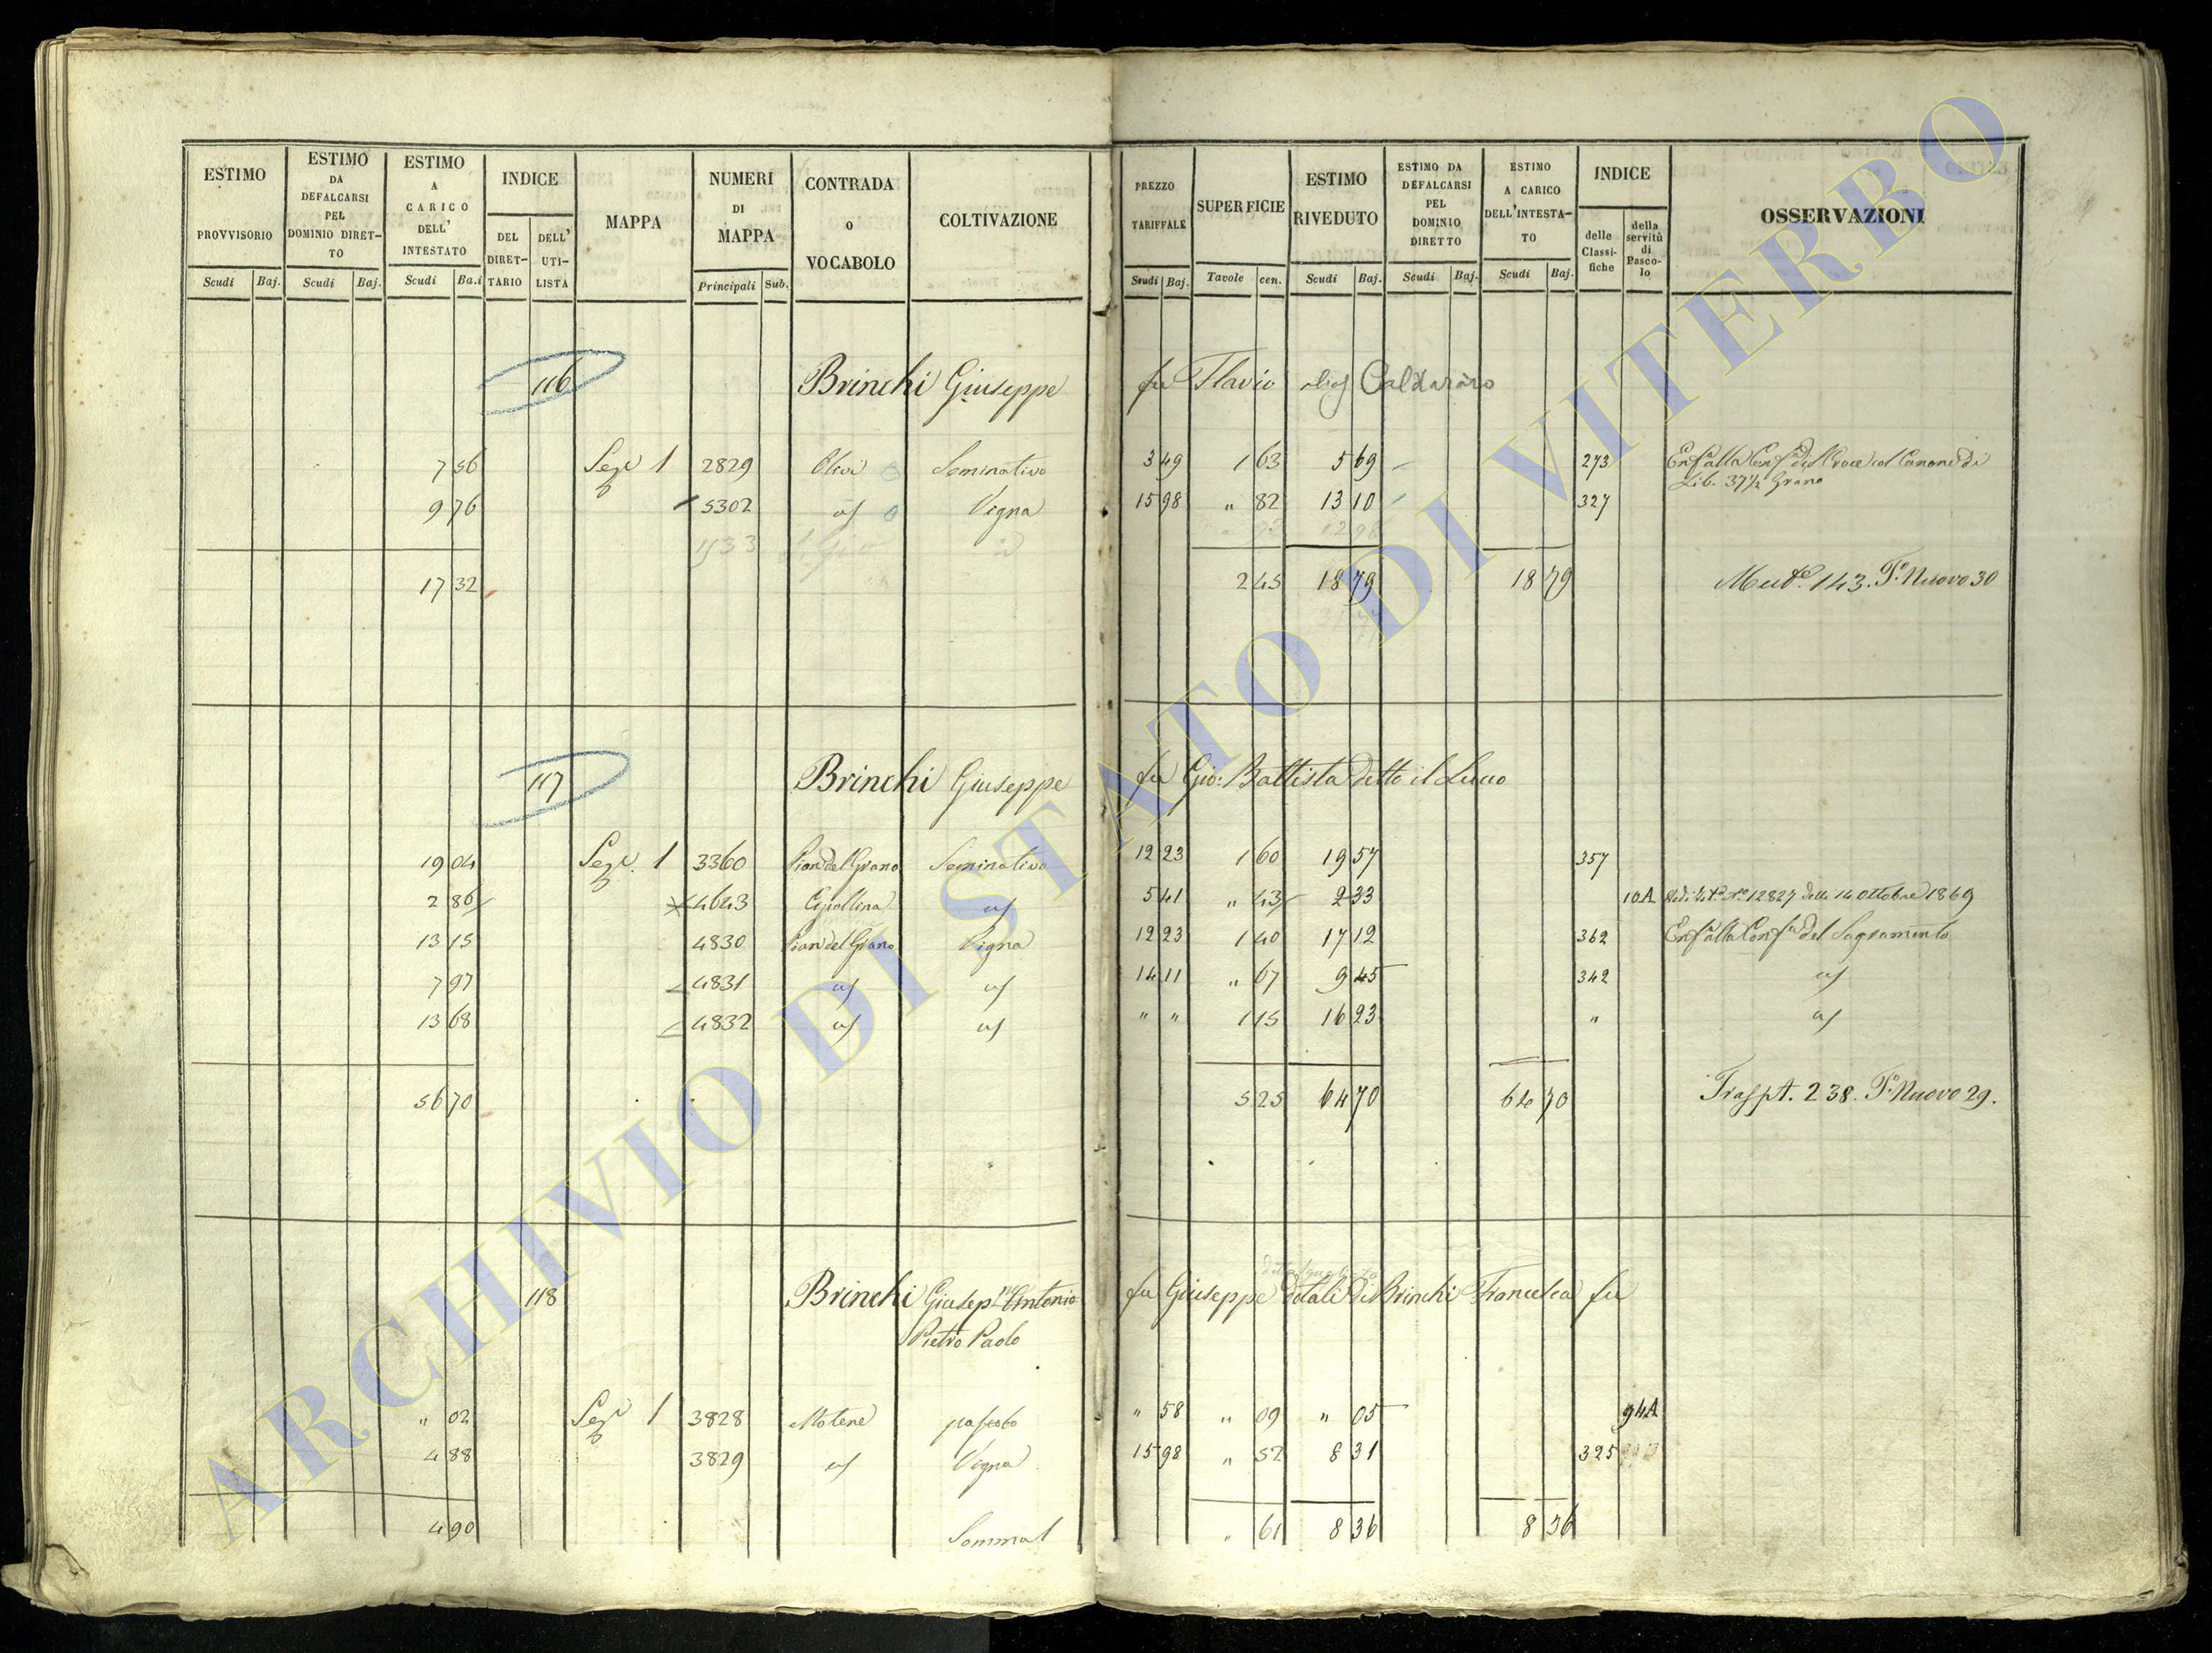 ESTIMO PROVVISORIO Scudi Baj. | ESTIMO DA DEFALCARSI PEL DOMINIO DIRETTO Scudi Baj. | ESTIMO A CARICO DELL' INTESTATO Scudi Ba.i | INDICE DEL DIRETTARIO DELL' UTILISTA | MAPPA | NUMERI DI MAPPA Principali Sub. | CONTRADA o VOCABOLO | COLTIVAZIONE | PREZZO TARIFFALE Scudi Baj. | SUPERFICIE Tavole cen. | ESTIMO RIVEDUTO Scudi Baj. | ESTIMO DA DEFALCARSI PEL DOMINIO DIRETTO Scudi Baj. | ESTIMO A CARICO DELL'INTESTATO Scudi Baj. | INDICE delle Classifiche della servitù di Pascolo | OSSERVAZIONI
116 Brinchi Giuseppe fu Flavio alias Caldararo
7 56 Segue 1 2829 Olivi Seminativo 3 49 1 63 5 69 273 Enfa alla Confa del Croce col Canone di
Lib. 37 1/2 Grano
9 76 5302 as Vigna 15 98 " 82 13 10 327
1533 id
17 32 2 45 18 79 18 79 143. Po Nuovo 30
117 Brinchi Giuseppe fu Gio: Battista detto il
19 04 Segue. 1 3360 Pian del Grano Seminativo 12 23 1 60 19 57 357
2 86 4643 Cipollina as 5 41 " 43 2 33 10A No 12827 delli 14 Ottobre 1869
13 15 4830 Pian del Grano Vigna 12 23 1 40 17 12 362 Enfa alla Confa del Sagramento
7 97 4831 as as 14 11 " 67 9 45 342 as
13 68 4832 as as " " 1 15 16 23 " as
56 70 5 25 64 70 64 70 Traspt. 238. Po Nuovo 29.
118 Brinchi Giuseppe Antonio fu Giuseppe dotali di Brinchi Francesca fu
Pietro Paolo
" 02 Segue 1 3828 Matene pascolo " 58 " 09 " 05 94A
4 88 3829 as Vigna 15 98 " 52 8 31 325
4 90 " 61 8 36 8 36
ARCHIVIO DI STATO DI VITERBO